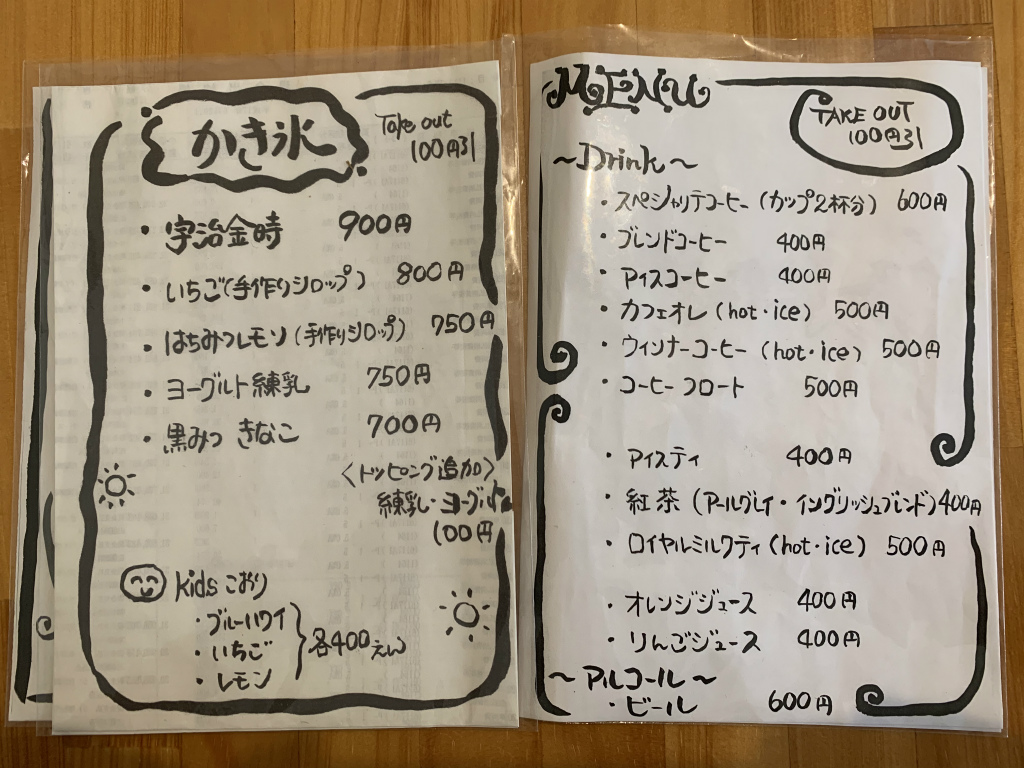 かき氷
Take out
100円引
・宇治金時 900円
・いちご(手作りシロップ) 800円
・はちみつレモン(手作りシロップ) 750円
・ヨーグルト練乳 750円
・黒みつ きなこ 700円
〈トッピング追加〉
練乳・ヨーグルト
100円
Kids こおり
・ブルーハワイ
・いちご
・レモン
各400えん
MENU
TAKE OUT
100円引
～Drink～
・スペシャリテコーヒー(カップ2杯分) 600円
・ブレンドコーヒー 400円
・アイスコーヒー 400円
・カフェオレ(hot・ice) 500円
・ウィンナーコーヒー(hot・ice) 500円
・コーヒーフロート 500円
・アイスティ 400円
・紅茶(アールグレイ・イングリッシュブレンド)400円
・ロイヤルミルクティ(hot・ice) 500円
・オレンジジュース 400円
・りんごジュース 400円
～アルコール～
・ビール 600円